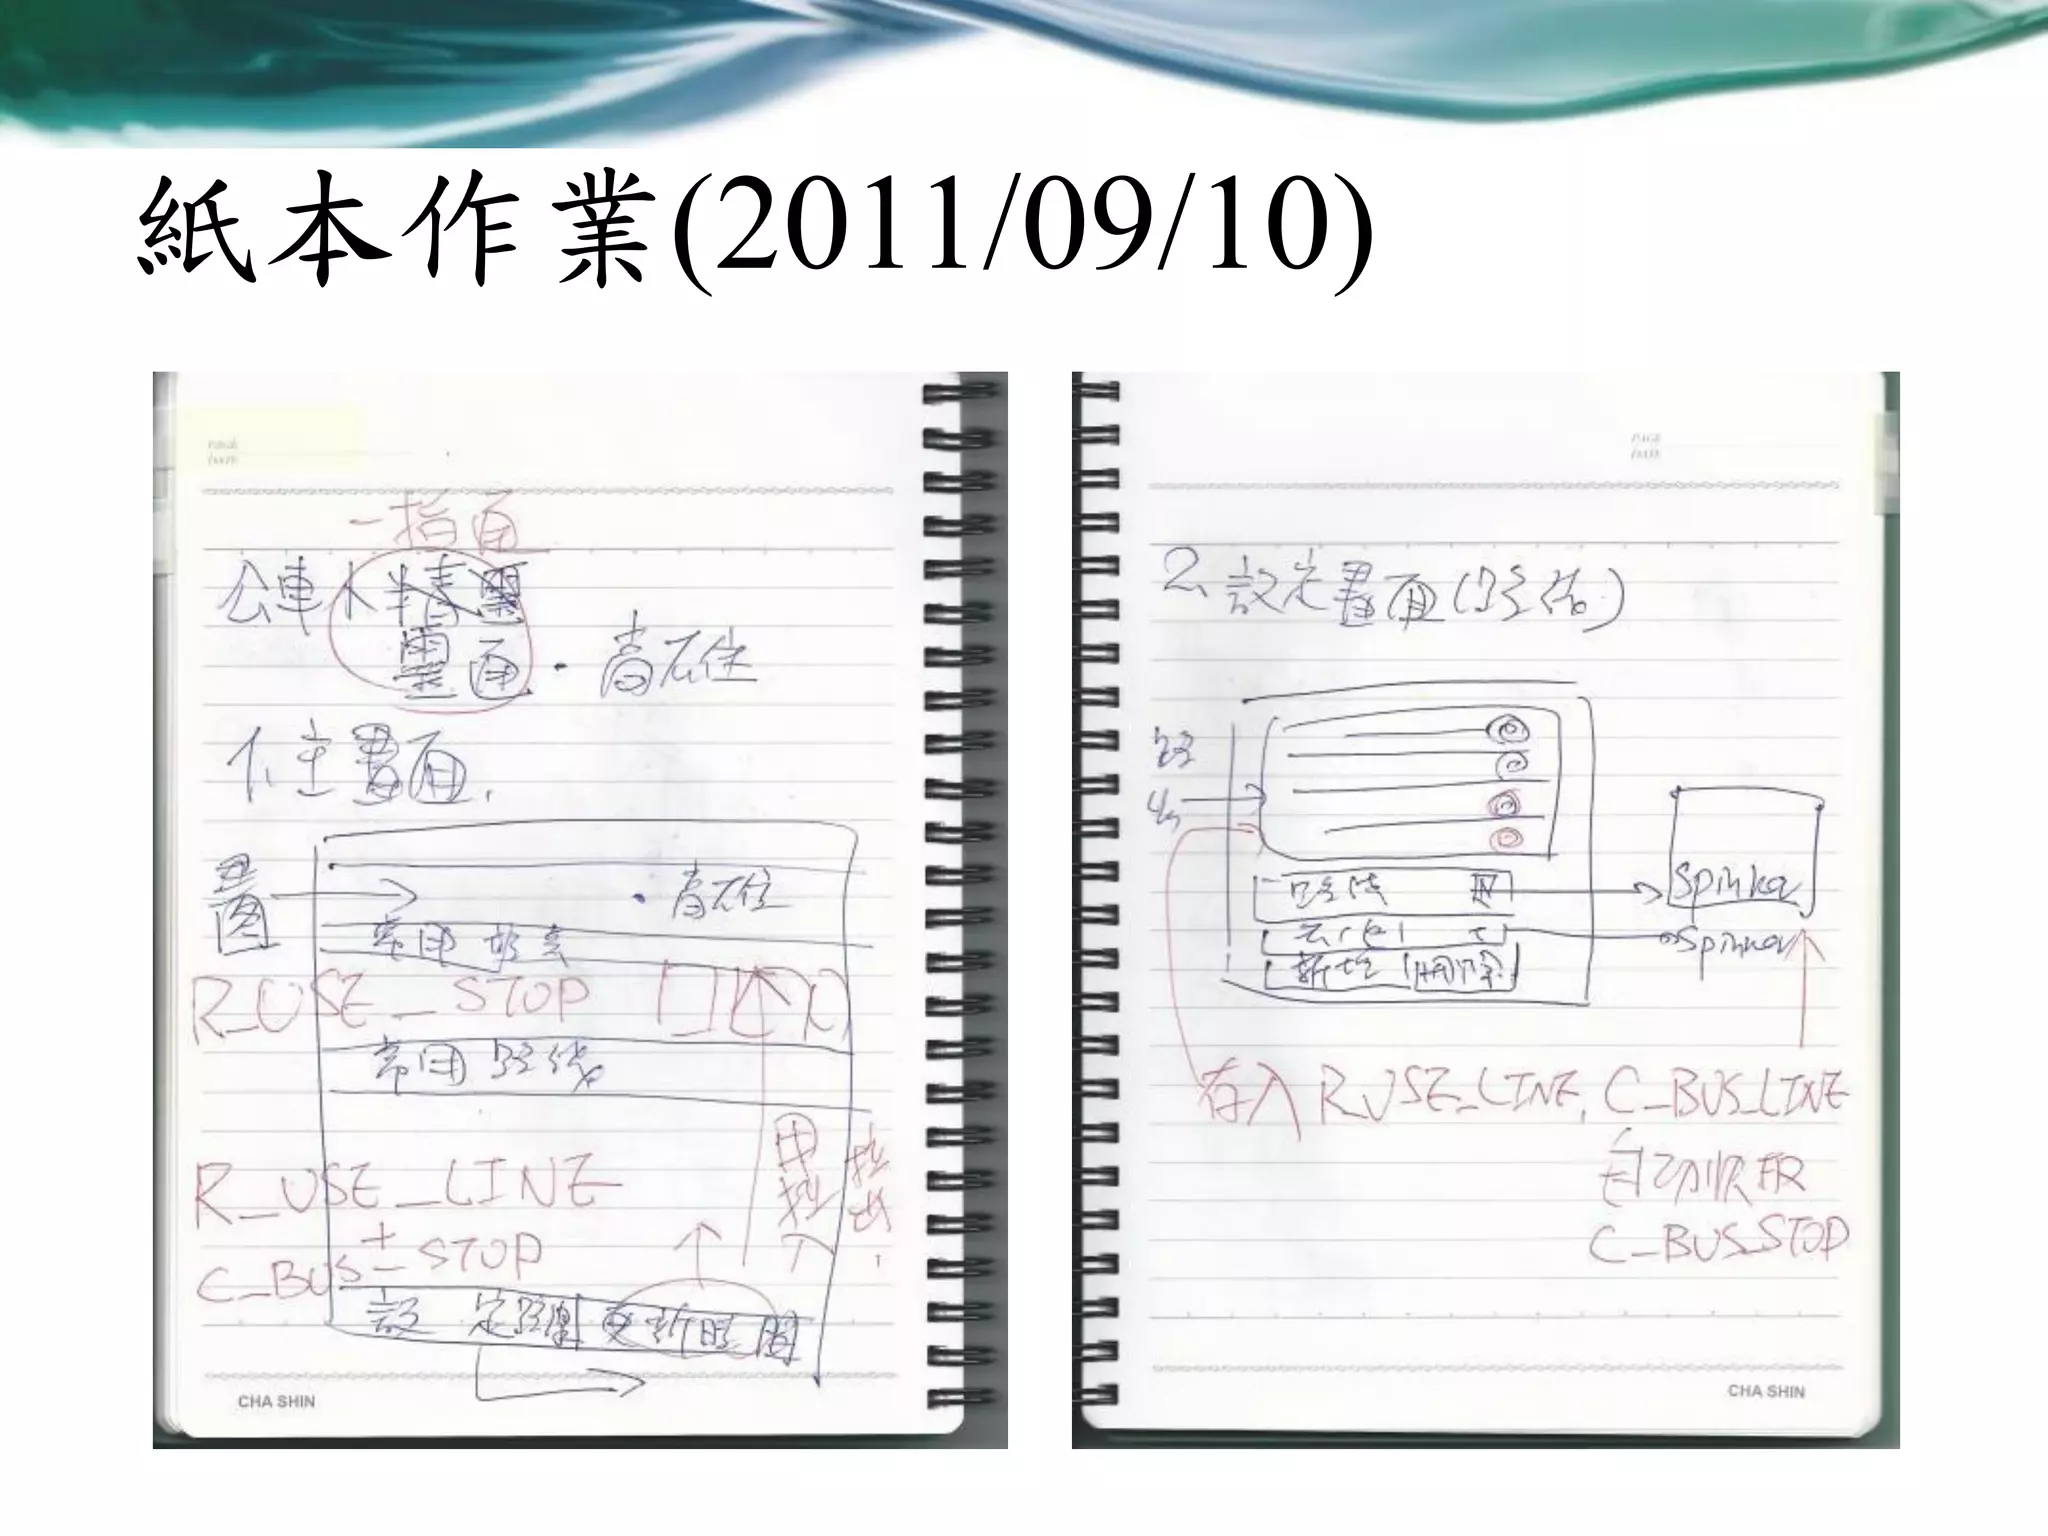 紙本作業(2011/09/10)
PAGE
DATE
一指面
公車小精靈
畫面
1.主畫面.
畫
面
常用
R_USE_STOP
常用路線
用
拉
入
拉
出
R_USE_LINE
+
C_BUS_STOP
設定路線 更新時間
CHA SHIN
PAGE
DATE
2.設定畫面(路線)
路
線
路線
Spinker
去(回)
Spinker
新增 刪除
存入 R_USE_LINE, C_BUS_LINE
自動收取
C_BUS_STOP
CHA SHIN